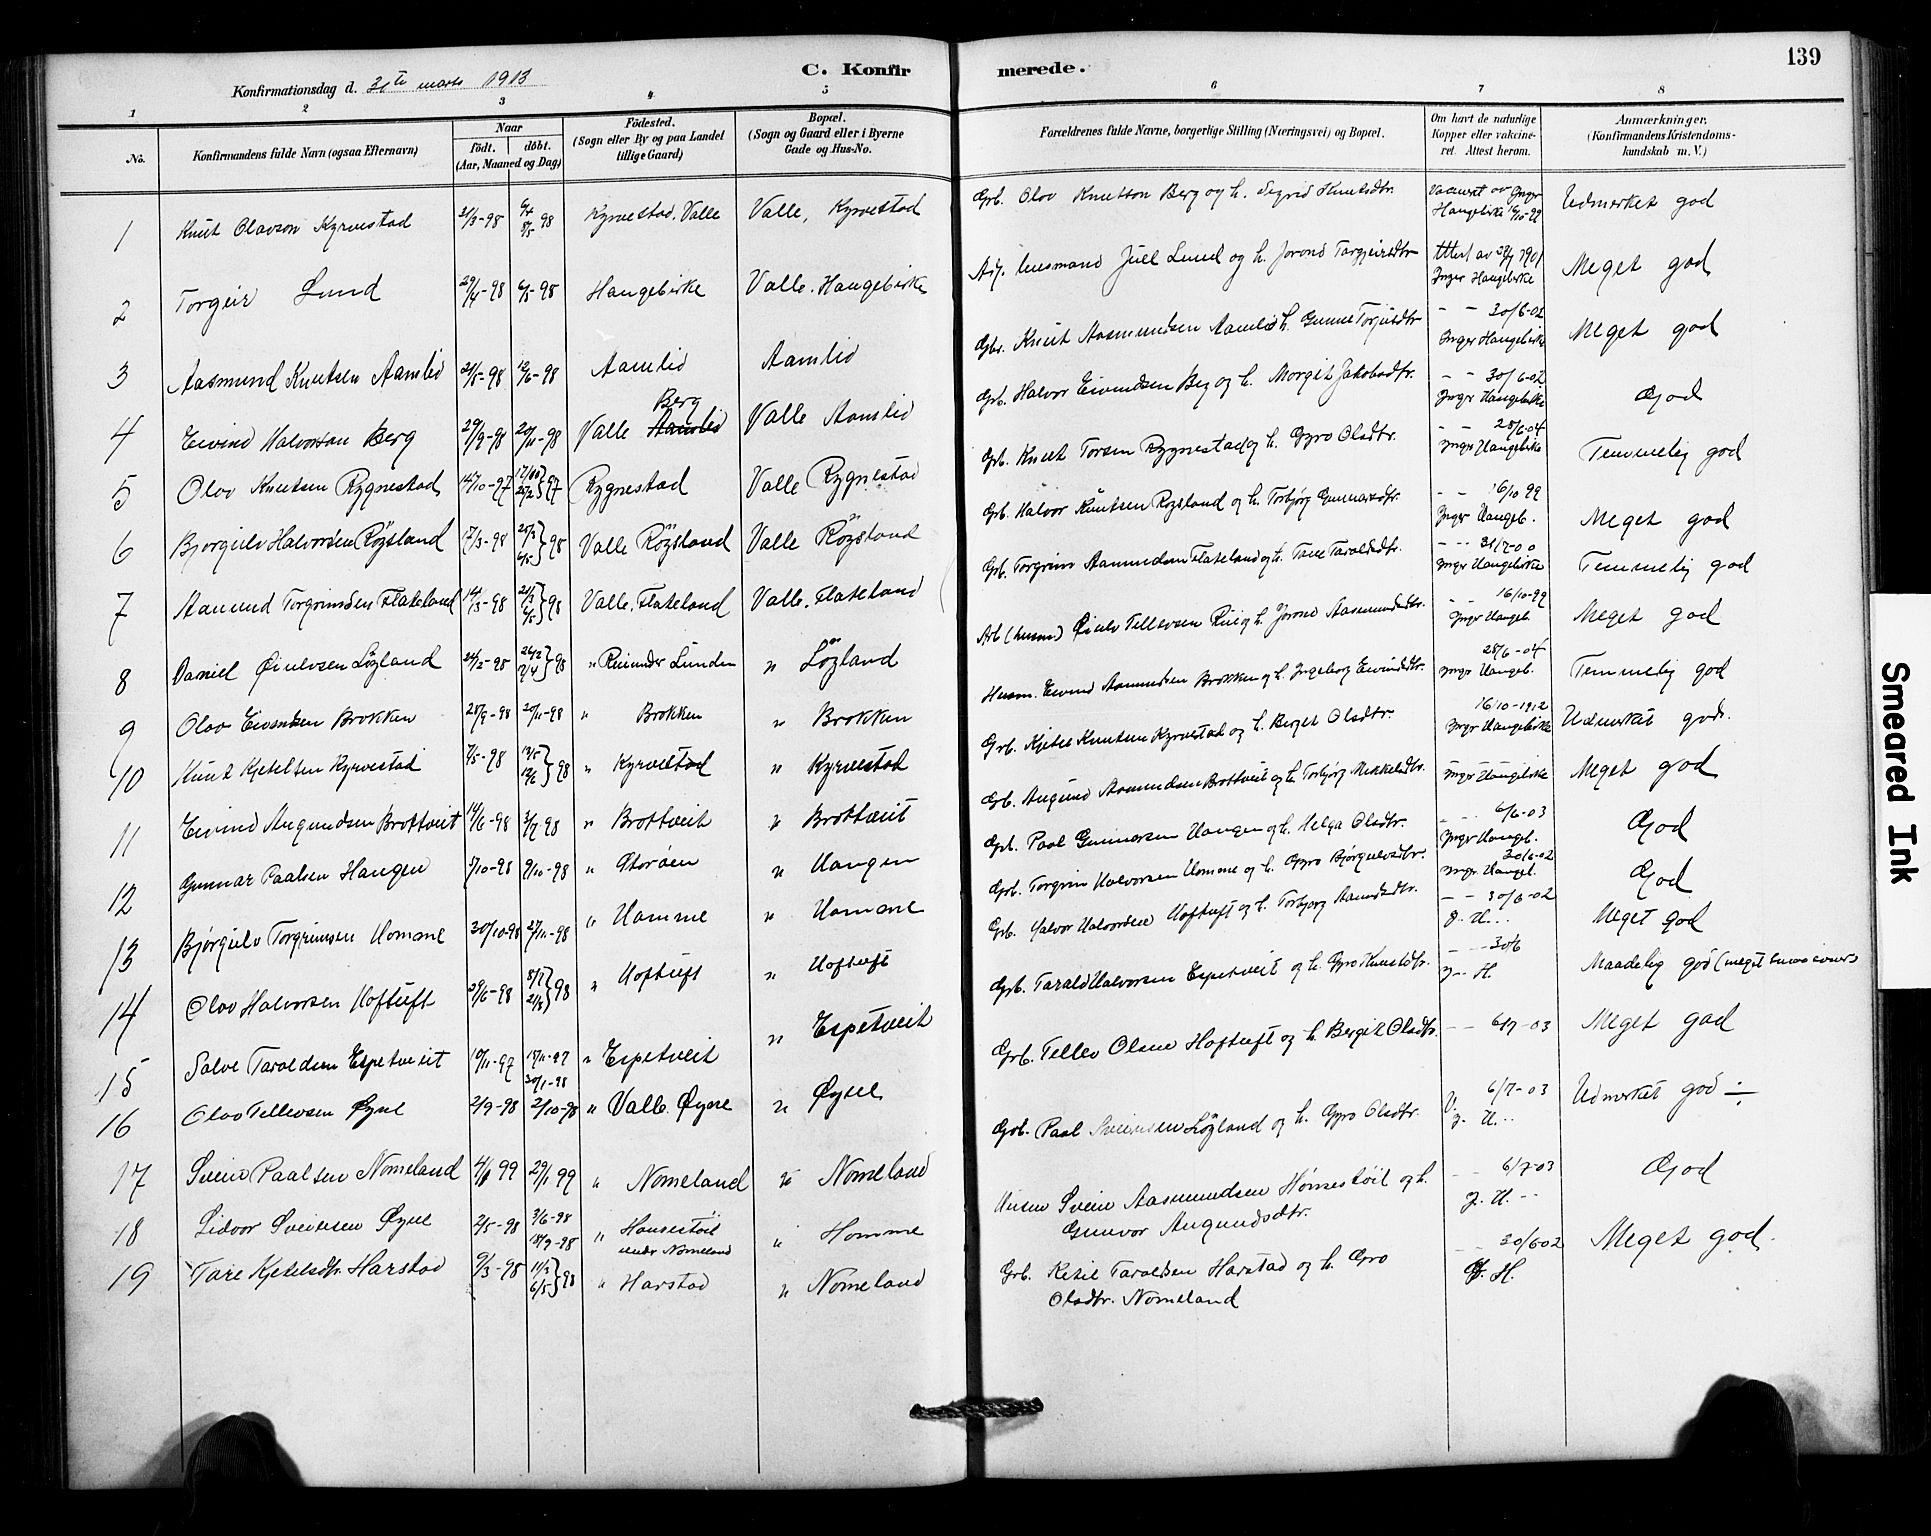 139
C. Konfirmerede.
Konfirmationsdag d. 1913
1 2 3 4 5 6 7 8
No.
Konfirmandens fulde Navn (ogsaa Efternavn)
Naar
födt. döbt.
(Aar, Maaned og Dag)
Födested.
(Sogn eller By og paa Landet
tillige Gaard)
Bopæl.
(Sogn og Gaard eller i Byerne
Gade og Hus-No.
Forældrenes fulde Navne, borgerlige Stilling (Næringsvei) og Bopæl.
Om havt de naturlige
Kopper eller vakcine-
ret. Attest herom.
Anmærkninger.
(Konfirmandens Kristendoms-
kundskab m. V.)
1 Knut Olavson Kyrvestad 21/3-98 98 Kyrvestad, Valle Valle, Kyrvestad Grb. Olav Knutson Berg og h. Sigrid Knutsdtr. Haugebirke 16/10-99 Udmerket god
2 Torgeir Lund 29/4-98 98 Haugebirke Valle. Haugebirke husmand Juel Lund og h. Jorond Targjeirsdtr Attest av 1901 Yngr Haugebirke Meget god
3 Aasmund Knutsen Aamlid 21/5-98 12/6-98 Aamlid Aamlid Gbr. Knut Aasmundsen Aamlid h. Gunne Torjusdtr - - 30/6-02 Yngr Haugebirke Meget god
4 Eivind Halvorson Berg 29/9-98 20/11-98 Valle Berg Valle Aamlid Grb. Halvor Eivindsen Berg og h. Margit Jakobsdtr. - - 30/6-02 Yngr Haugebirke God
5 Olav Knutsen Rygnestad 14/10-97 97 Rygnestad Valle Rygnestad Grb. Knut Torsen Rygnestad og h. Gyro Olsdtr. - - 28/6-04 Yngr Haugebirke Temmelig god
6 Bjorgulv Halvorsen Röysland 17/3-98 98 Valle Röysland Valle Röysland Grb. Halvor Knutsen Roysland og h. Torbjørg Gunnarsdtr. - - 16/10 99 Yngr Haugeb. Meget god
7 Aamund Torgrimsen Flateland 14/3-98 98 Valle. Flateland Valle. Flateland Grb. Torgrim Aamundsen Flateland og h. Tone Taraldsdtr. - - 31/7-00 Yngr Haugebirke Temmelig god
8 Daniel Øiulvsen Löyland 98 " Lunden " Löyland Arb (husm) Øiulv Tellevsen og h. Jorond Aasmundsdtr. - - 16/10-99 Yngr Haugeb. Meget god
9 Olav Eivindsen Brokken 28/9-98 20/11-98 " Brokken " Brokken Husm. Eivind Aamundsen Brokken og h. Ingeborg Eivindsdtr. 28/6-04 Yngr Haugeb. Temmelig god
10 Knut Kjetelsen Kyrvestad 7/5-98 98 " Kyrvestad " Kyrvestad Grb. Kjetel Knutsen Kyrvestad og h. Berget Olsdtr. 16/10-1912 Yngr Haugebirke Udmerket god.
11 Eivind Augundsen Brottveit 14/6-98 3/7 98 " Brottveit " Brottveit Grb. Augund Aamundsen Brottveit og h. Torbjørg Mikkelsdtr. Yngr Haugebirke Meget god
12 Gunnar Paalsen Haugen 98 9/10-98 " Storøen " Haugen Grb. Paal Gunnarsen Haugen og h. Helga Olsdtr. 6/6-03 Yngr Haugeb. God
13 Bjørgulv Torgrimsen Homme 30/10-98 27/11-98 " Homme " Homme Grb. Torgrim Halvorsen Homme og h. Gyro Bjørgulvsdtr. 30/6-02 Yngr Haugeb. God
14 Olav Halvorsen Hoftuft 29/6-98 98 " Hoftuft " Hoftuft Grb. Halvor Halvorsen Hoftuft og h. Torbjorg Aamundsdtr. - - 30/6-02 Y. H... Meget god
15 Salve Taraldsen Espetveit 10/11-97 30/1-98 " Espetveit " Espetveit Grb. Tarald Halvorsen Espetveit og h. Gyro Knutsdtr. - - 30/6 Y. H. Maadelig god
16 Olav Tellevsen Øyne 2/9-98 2/10-98 " Valle. Øyne " Øyne Grb. Tellev Olsen Hoftuft og h. Bergit Olsdtr. - - 6/7-03 Meget god
17 Svein Paalsen Nomeland 99 29/1 99 " Nomeland " Nomeland Grb. Paal Sveinsen Löyland og h. Gyro Olsdtr. 6/7-03 Y. H... Udmerket god
18 Lidvor Sveinsen Øyne 2/5-98 18/9-98 " under Nomeland " Homme Husm Svein Aasmundsen og h. - - 6/7-03 Y. H. - - God
Gunvor Augundsdtr.
19 Tare Kjetelsdtr. Harstad 9/3-98 98 " Harstad " Nomeland Grb. Ketil Taraldsen Harstad og h. Gyro - - 30/6 02 Y. H. Meget god.
Olsdtr. Nomeland
Smeared Ink